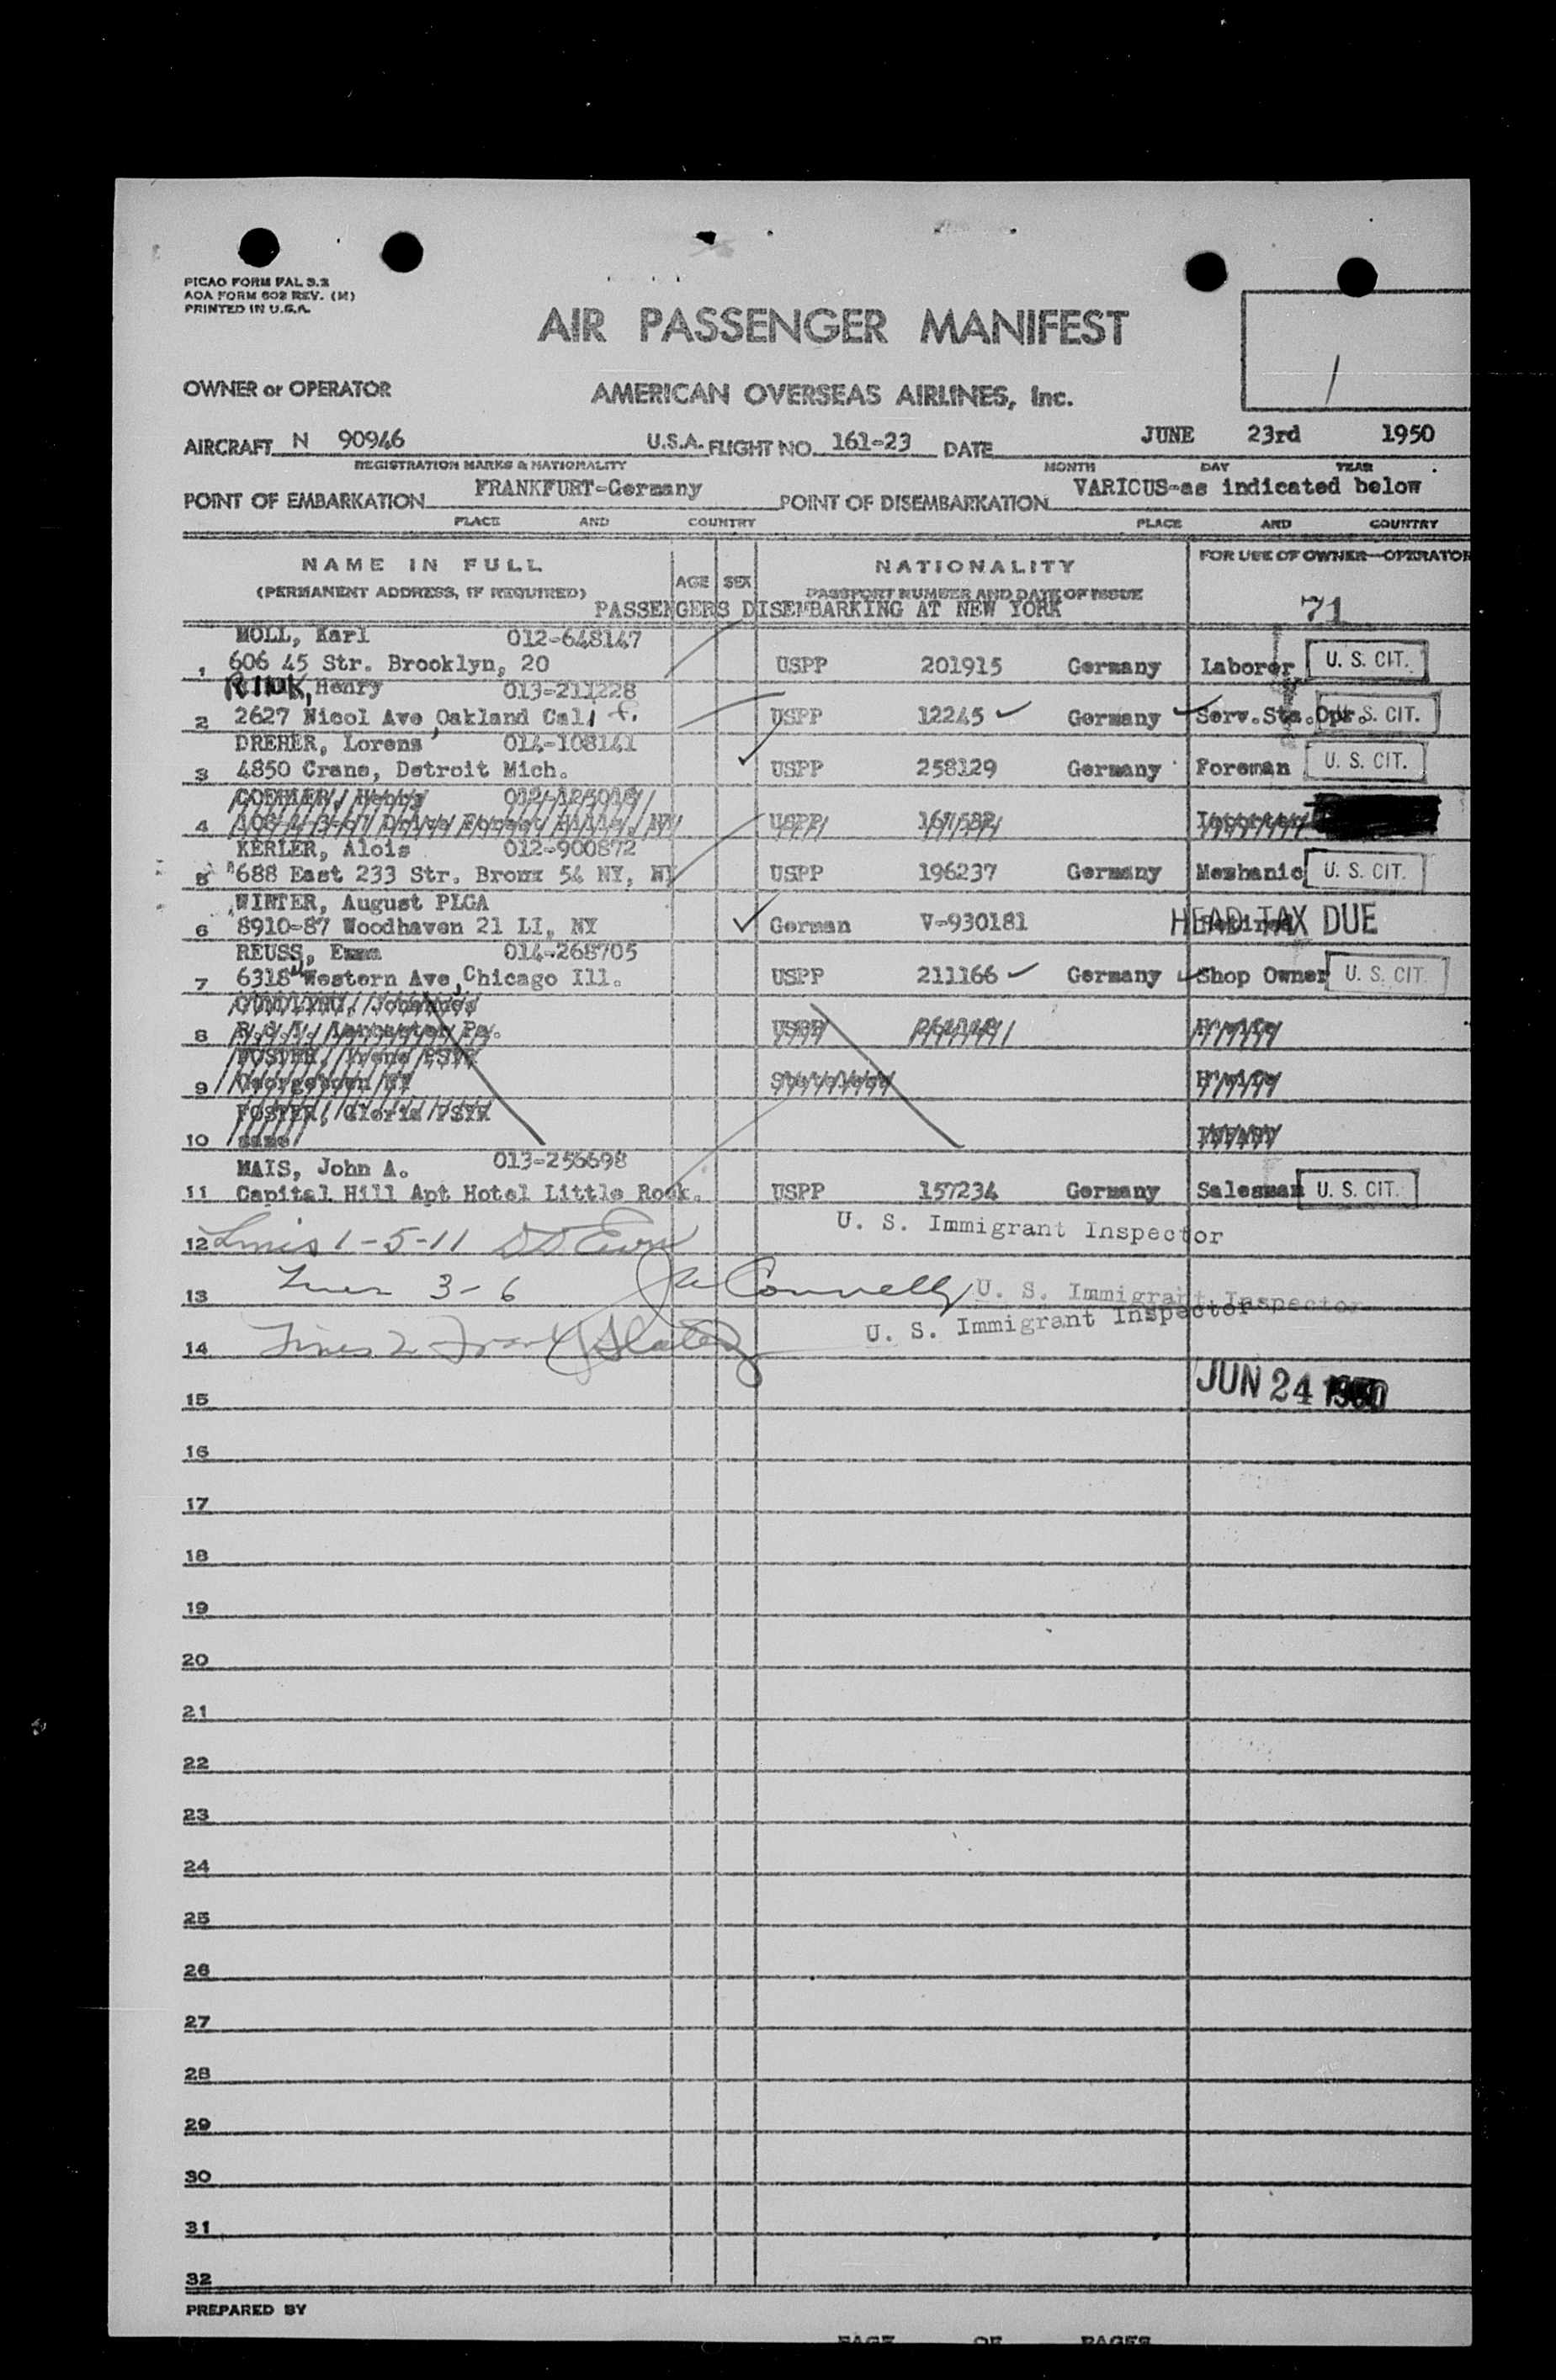 PICAO FORM PAL 3.2
AOA FORM 602 REV. (M)
PRINTED IN U.S.A.
AIR PASSENGER MANIFEST
1
OWNER or OPERATOR AMERICAN OVERSEAS AIRLINES, Inc.
AIRCRAFT N 90946 U.S.A. FLIGHT NO. 161-23 DATE JUNE 23rd 1950
REGISTRATION MARKS & NATIONALITY MONTH DAY YEAR
POINT OF EMBARKATION FRANKFURT-Germany POINT OF DISEMBARKATION VARICUS-as indicated below
PLACE AND COUNTRY PLACE AND COUNTRY
NAME IN FULL AGE SEX NATIONALITY FOR USE OF OWNER—OPERATOR
(PERMANENT ADDRESS, IF REQUIRED) PASSPORT NUMBER AND DATE OF ISSUE
PASSENGERS DISEMBARKING AT NEW YORK 71
MOLL, Karl 012-648147
1 606 45 Str. Brooklyn, 20 USPP 201915 Germany Laborer U. S. CIT.
RINK, Henry 013-211228
2 2627 Nicol Ave, Oakland Calif. USPP 12245 Germany Serv.Sta.Opr. U. S. CIT.
DREHER, Lorens 014-108141
3 4850 Crane, Detroit Mich. USPP 258129 Germany Foreman U. S. CIT.
4 USPP
KERLER, Alois 012-900872
5 688 East 233 Str. Bronx 54 NY, NY USPP 196237 Germany Meshanic U. S. CIT.
WINTER, August PLCA
6 8910-87 Woodhaven 21 LI, NY German V-930181 Retired HEAD TAX DUE
REUSS, Emma 014-268705
7 6318 Western Ave, Chicago Ill. USPP 211166 Germany Shop Owner U. S. CIT.
8 Lancaster Pa. USPP
FOSTER,
9 Georgetown
FOSTER, Gloria
10 same
MAIS, John A. 013-256698
11 Capital Hill Apt Hotel Little Rock. USPP 157234 Germany Salesman U. S. CIT.
U. S. Immigrant Inspector
12 Lines 1-5-11
13 3-6 Connelly U. S. Immigrant Inspector
U. S. Immigrant Inspector
14 Lines 2
JUN 24 1950
15
16
17
18
19
20
21
22
23
24
25
26
27
28
29
30
31
32
PREPARED BY
PAGE OF PAGES